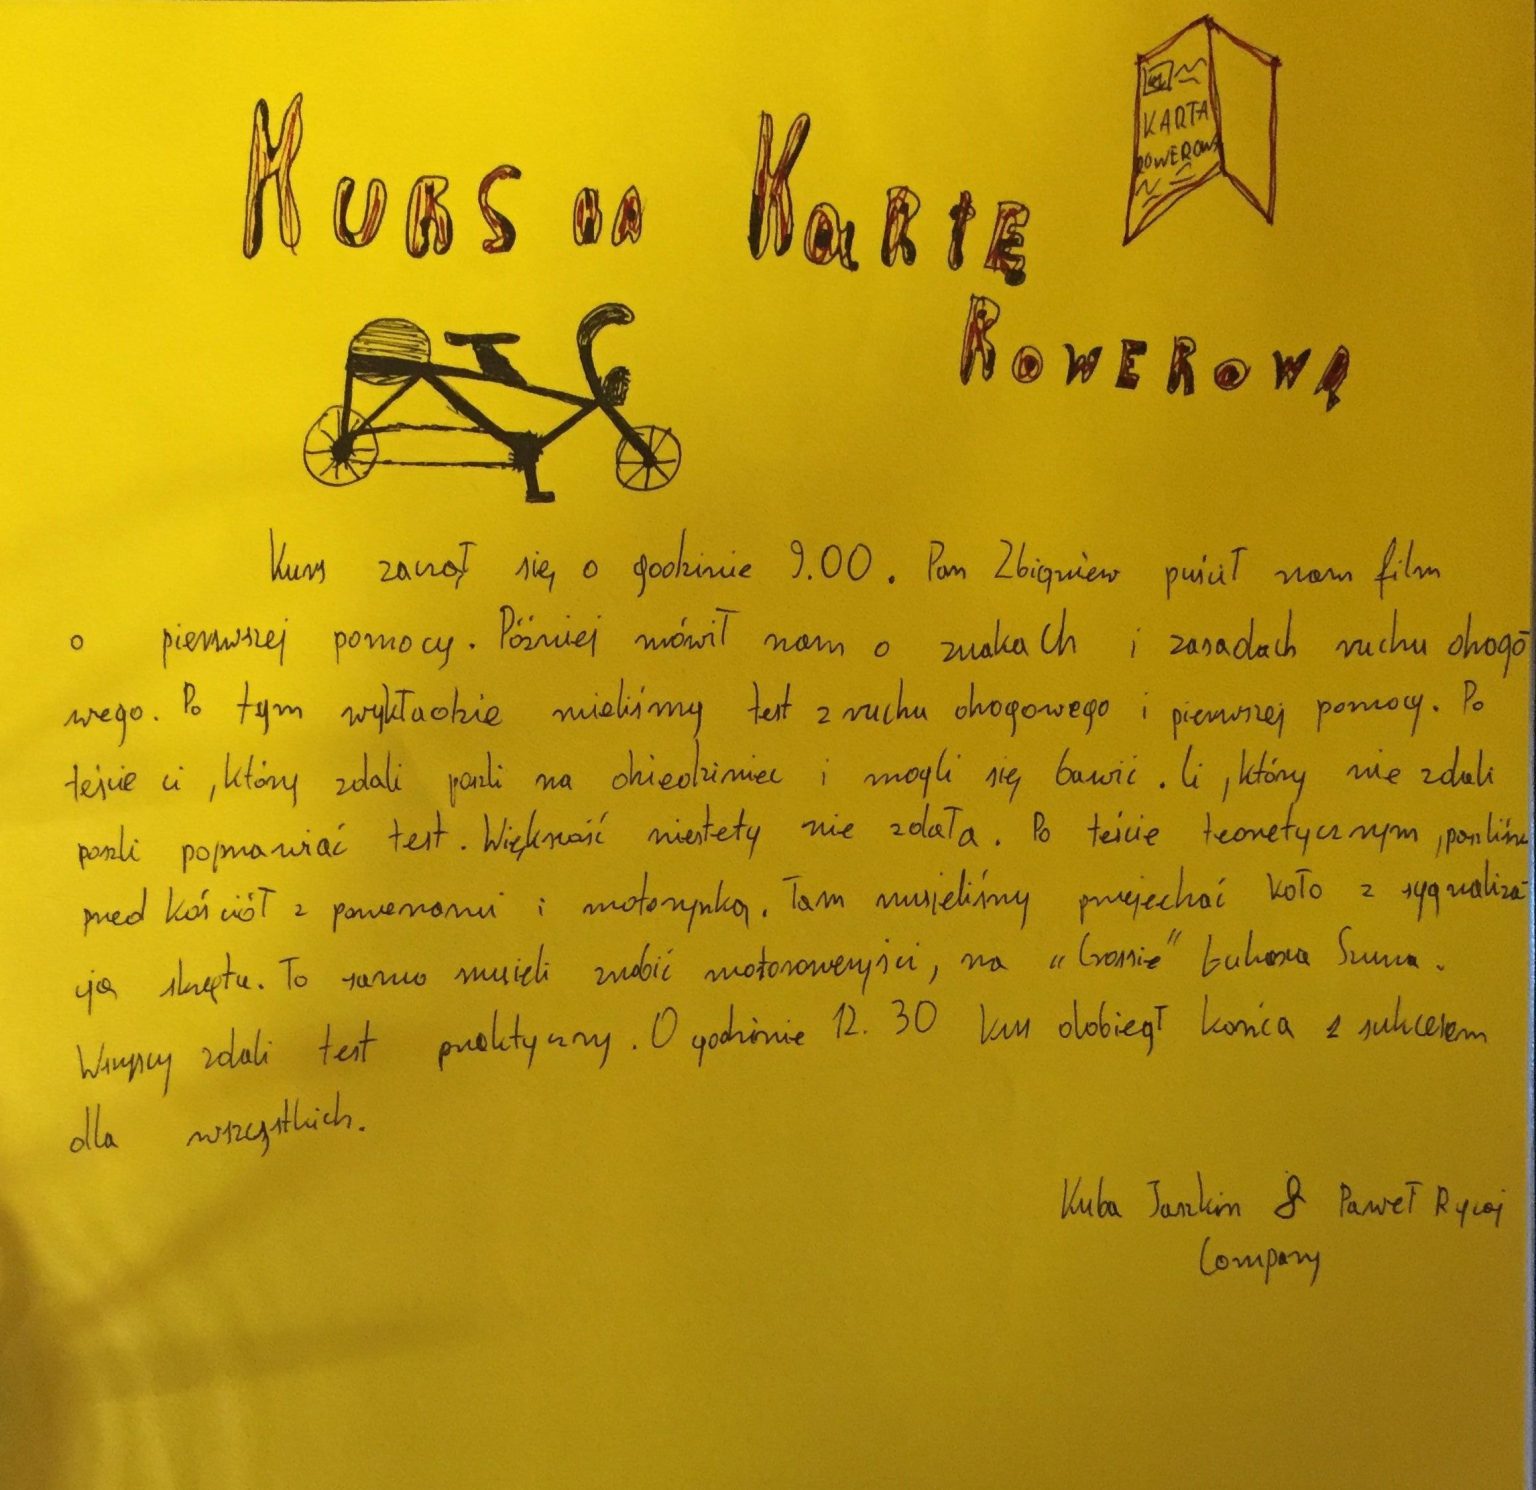 KARTA
ROWEROWA
KURS na KaRtĘ
ROWEROWĄ
Kurs zaczął się o godzinie 9.00. Pan Zbigniew puścił nam film
o pierwszej pomocy. Później mówił nam o znakach i zasadach ruchu drogo
wego. Po tym wykładzie mieliśmy test z ruchu drogowego i pierwszej pomocy. Po
teście ci, którzy zdali poszli na dziedziniec i mogli się bawić. Ci, którzy nie zdali
poszli poprawiać test. Większość niestety nie zdała. Po teście teoretycznym, poszliśmy
przed kościół z rowerami i motorynką. Tam musieliśmy przejechać koło z sygnaliza-
cją skrętu. To samo musieli zrobić motorowerzyści, na "Crossie" Łukasza Szura.
Wszyscy zdali test praktyczny. O godzinie 12.30 kurs dobiegł końca z sukcesem
dla wszystkich.
Kuba Jaszkin & Paweł Rycaj
Company